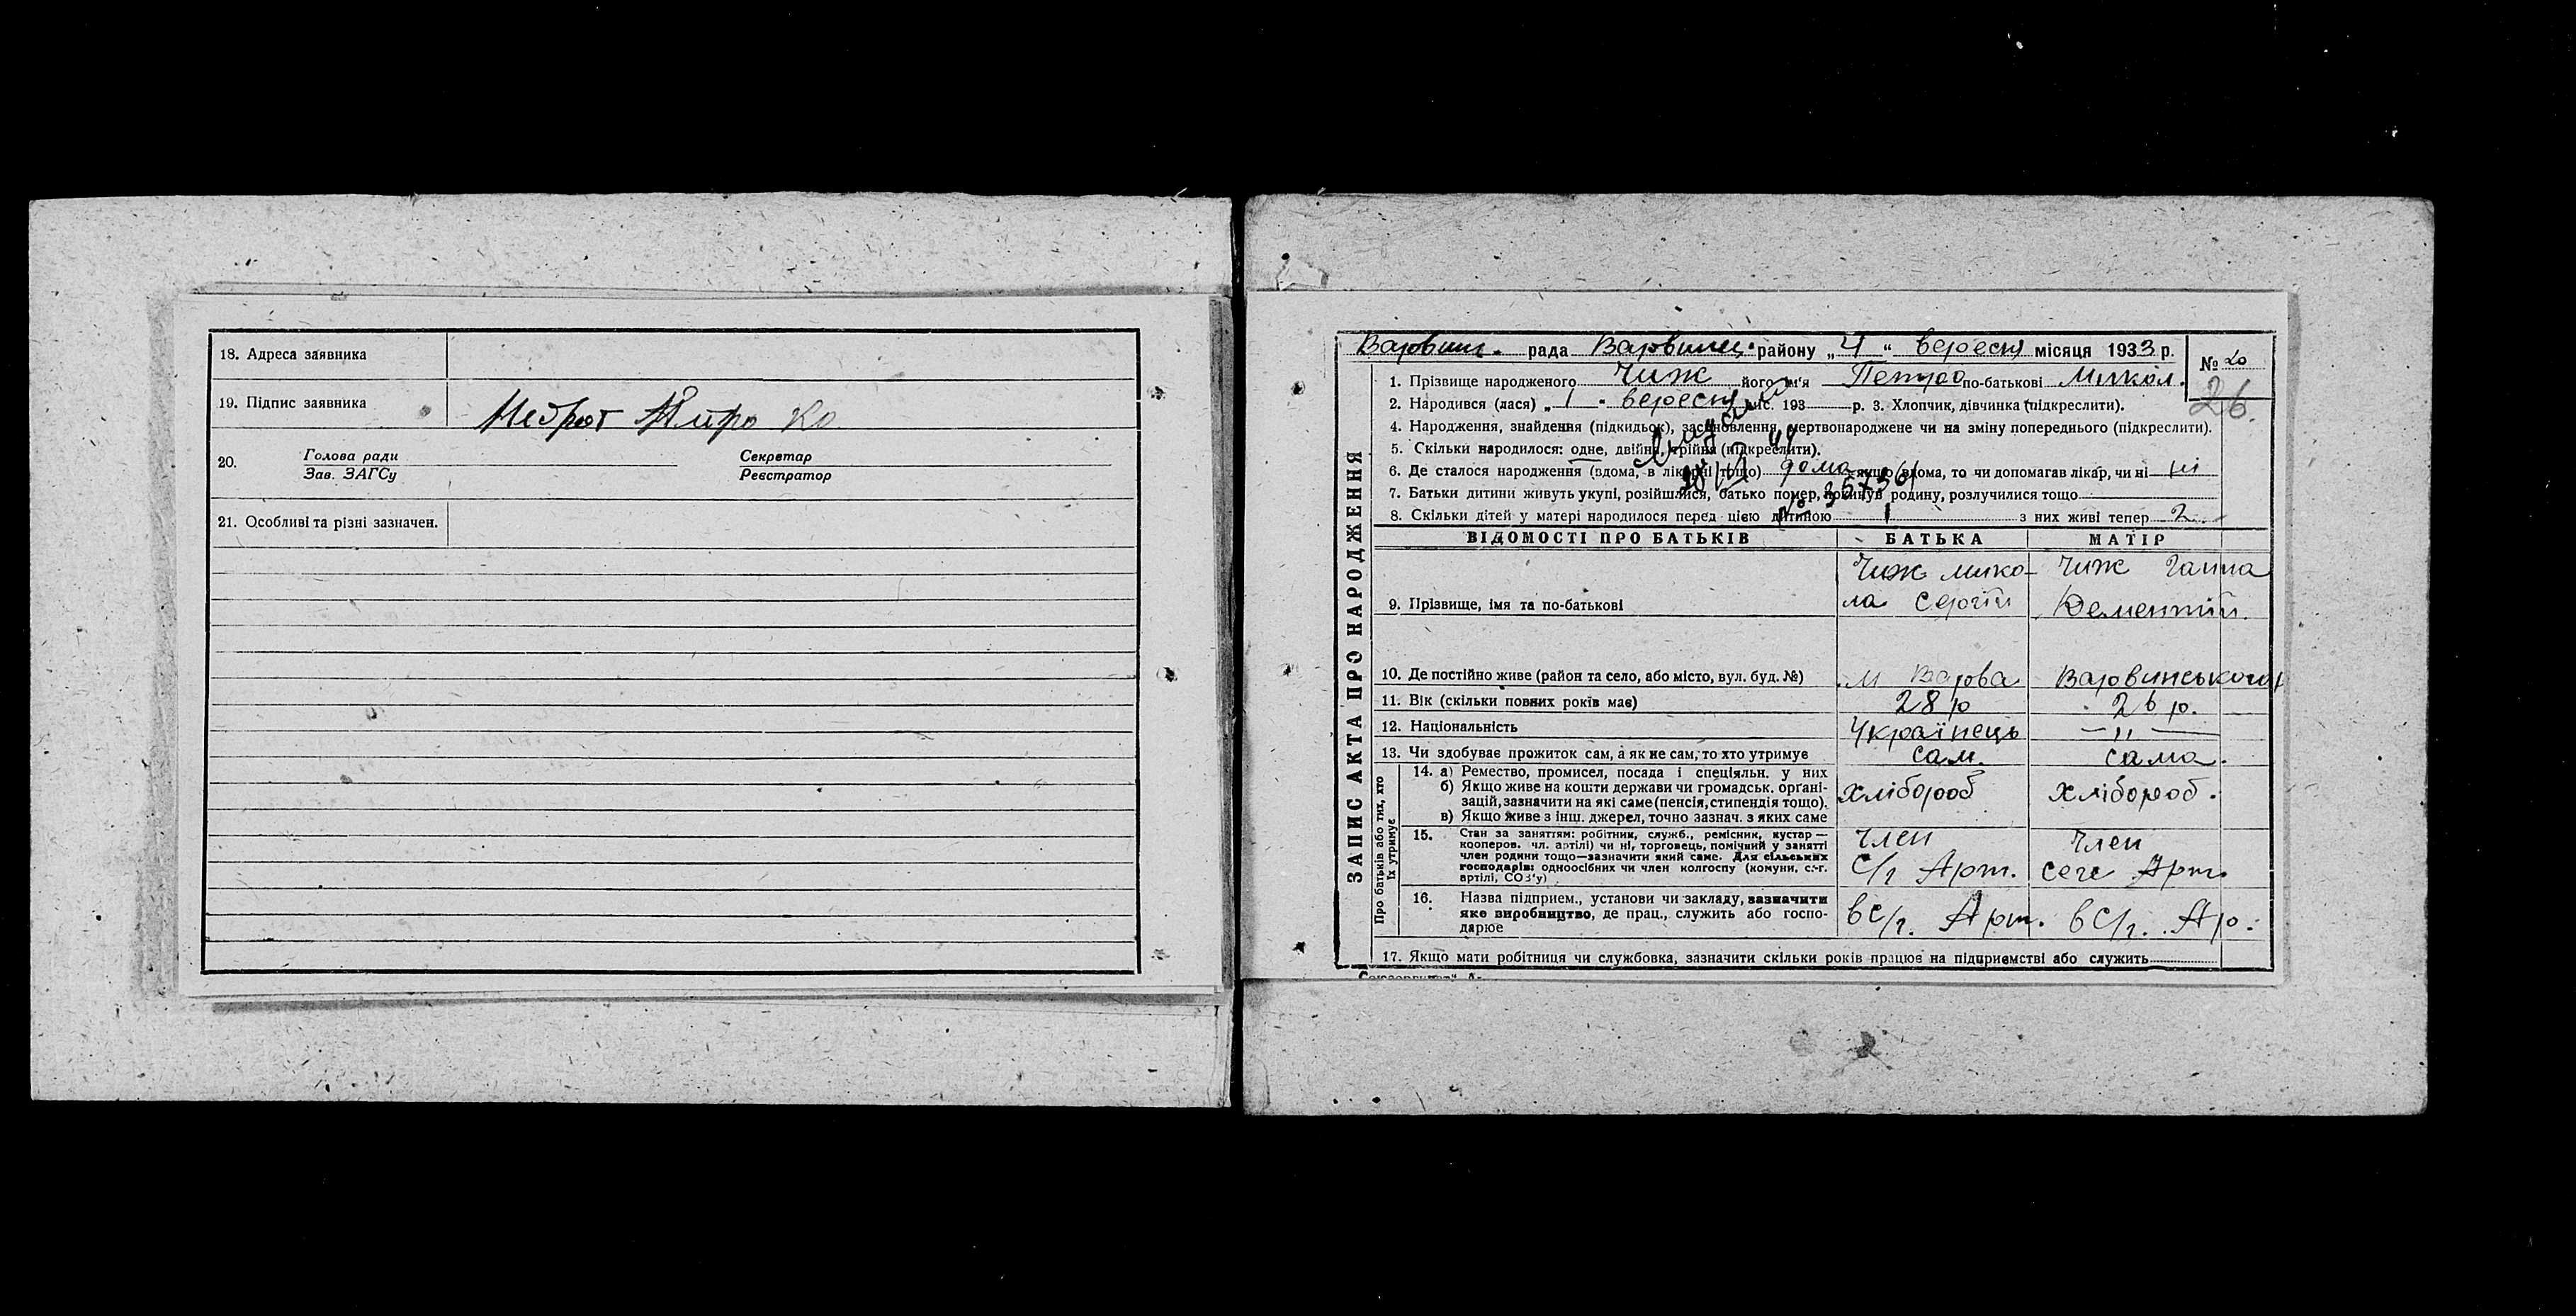 18. Адреса заявника
19. Підпис заявника
20. Голова ради Секретар
Зав. ЗАГСу Реєстратор
21. Особливі та різні зазначен.
ЗАПИС АКТА ПРО НАРОДЖЕННЯ
Варвин. рада Варвинец. району „4“ вересня місяця 1933 р. № 20
26.
1. Прізвище народженого Чиж його ім'я Петро по-батькові Микол.
2. Народився (лася) „1" вересня міс. 193 р. 3. Хлопчик, дівчинка (підкреслити).
4. Народження, знайдення (підкидьок), засиновлення, мертвонароджене чи на зміну попереднього (підкреслити).
5. Скільки народилося: одне, двійня, трійня (підкреслити).
6. Де сталося народження (вдома, в лікарні тощо) дома якщо вдома, то чи допомагав лікар, чи ні ні
7. Батьки дитини живуть укупі, розійшлися, батько помер, покинув родину, розлучилися тощо
8. Скільки дітей у матері народилося перед цією дитиною 1 з них живі тепер 2
ВІДОМОСТІ ПРО БАТЬКІВ БАТЬКА МАТІР
Чиж Мико- Чиж Ганна
9. Прізвище, імя та по-батькові ла Сергій Дементій.
10. Де постійно живе (район та село, або місто, вул. буд. №) м Варва Варвинського р
11. Вік (скільки повних років має) 28 р 26 р.
12. Національність Українець — " —
13. Чи здобуває прожиток сам, а як не сам, то хто утримує сам. сама.
Про батьків або тих, хто їх утримує
14. а) Ремество, промисел, посада і спеціяльн. у них
б) Якщо живе на кошти держави чи громадськ. органі-
зацій, зазначити на які саме (пенсія, стипендія тощо). хлібороб хлібороб.
в) Якщо живе з інш. джерел, точно зазнач. з яких саме
15. Стан за заняттям: робітник, служб., ремісник, кустар —
кооперов. чл. артілі) чи ні, торговець, помічний у занятті член член
член родини тощо—зазначити який саме. Для сільських
господарів: одноосібних чи член колгоспу (комуни, с.-г. С/г Арт. Арт.
артілі, СОЗ'у)
16. Назва підприєм., установи чи закладу, зазначити
яке виробництво, де прац., служить або госпо- в С/г. Арт. в С/г. Ар.
дарює
17. Якщо мати робітниця чи службовка, зазначити скільки років працює на підприємстві або служить